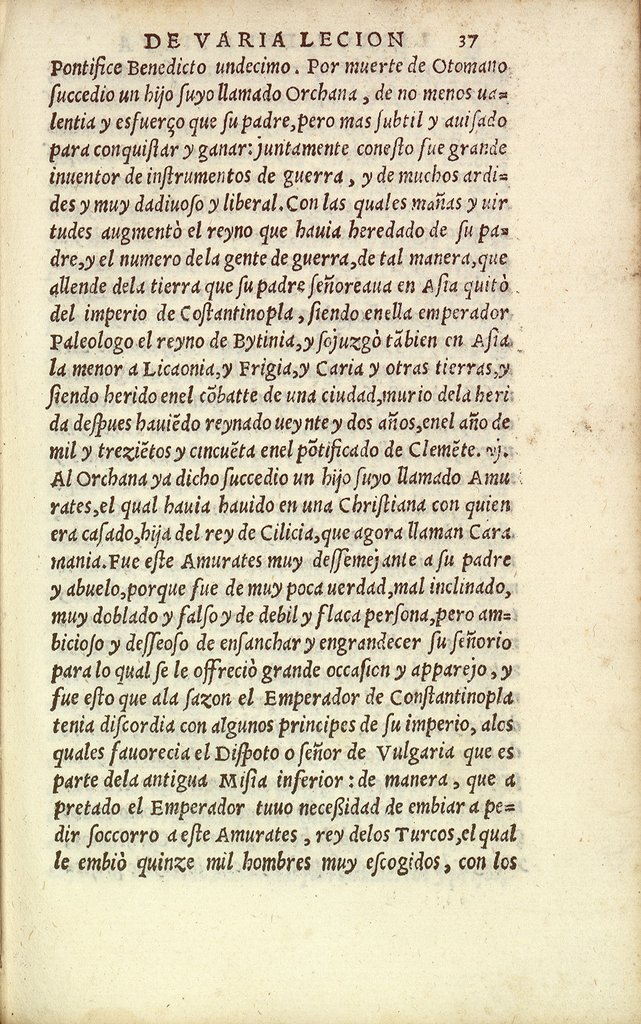 DE VARIA LECION 37
Pontifice Benedicto undecimo. Por muerte de Otomano
ſuccedio un hijo ſuyo llamado Orchana, de no menos ua=
lentia y esfuerço que ſu padre, pero mas ſubtil y auiſado
para conquiſtar y ganar: juntamente coneſto fue grande
inuentor de inſtrumentos de guerra, y de muchos ardi=
des y muy dadiuoſo y liberal. Con las quales mañas y uir
tudes augmentò el reyno que hauia heredado de ſu pa=
dre, y el numero dela gente de guerra, de tal manera, que
allende dela tierra que ſu padre ſeñoreaua en Aſia quitò
del imperio de Coſtantinopla, ſiendo enella emperador
Paleologo el reyno de Bytinia, y ſojuzgò tãbien en Aſia
la menor a Licaonia, y Frigia, y Caria y otras tierras, y
ſiendo herido enel cõbatte de una ciudad, murio dela heri
da deſpues hauiẽdo reynado ueynte y dos años, enel año de
mil y treziẽtos y cincuẽta enel põtificado de Clemẽte. vj.
Al Orchana ya dicho ſuccedio un hijo ſuyo llamado Amu
rates, el qual hauia hauido en una Chriſtiana con quien
era caſado, hija del rey de Cilicia, que agora llaman Cara
mania. Fue eſte Amurates muy deſſemejante a ſu padre
y abuelo, porque fue de muy poca uerdad, mal inclinado,
muy doblado y falſo y de debil y flaca perſona, pero am=
bicioſo y deſſeoſo de enſanchar y engrandecer ſu ſeñorio
para lo qual ſe le offreciò grande occaſion y apparejo, y
fue eſto que ala ſazon el Emperador de Conſtantinopla
tenia diſcordia con algunos principes de ſu imperio, alos
quales fauorecia el Diſpoto o ſeñor de Vulgaria que es
parte dela antigua Miſia inferior: de manera, que a
pretado el Emperador tuuo neceßidad de embiar a pe=
dir ſoccorro a eſte Amurates, rey delos Turcos, el qual
le embiò quinze mil hombres muy eſcogidos, con los